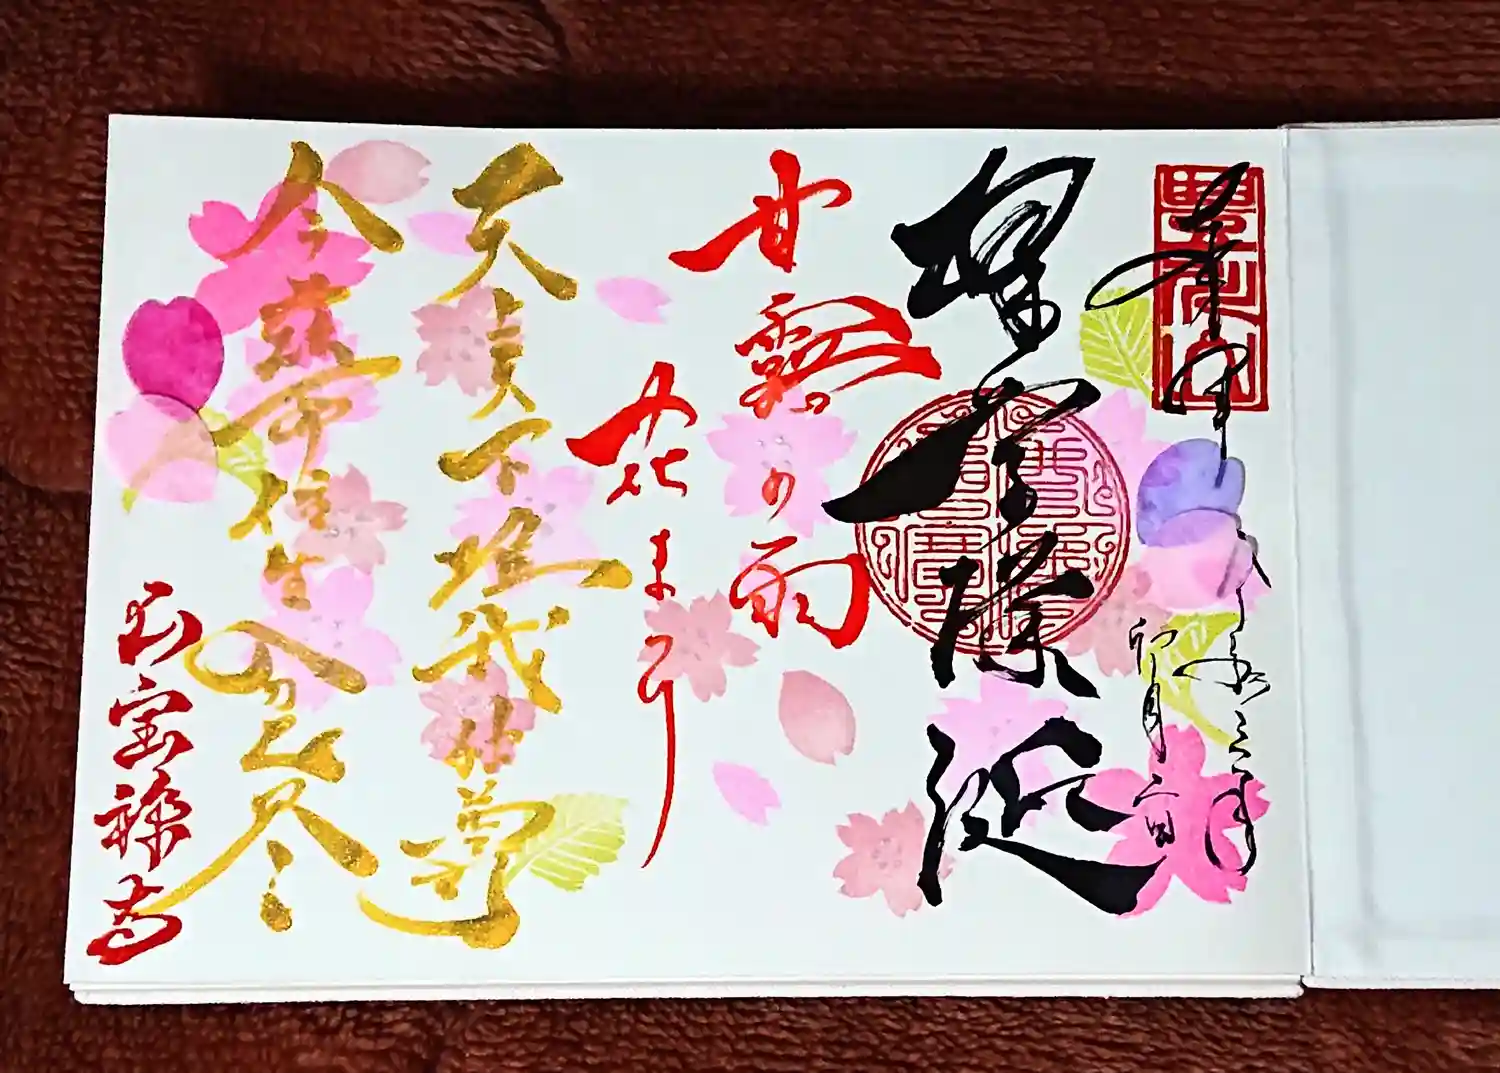 奉拝
令和三年
卯月
釋尊降誕
甘露の雨
花まつり
天上天下唯我独尊
今茲而往生分已尽
玉宝禅寺